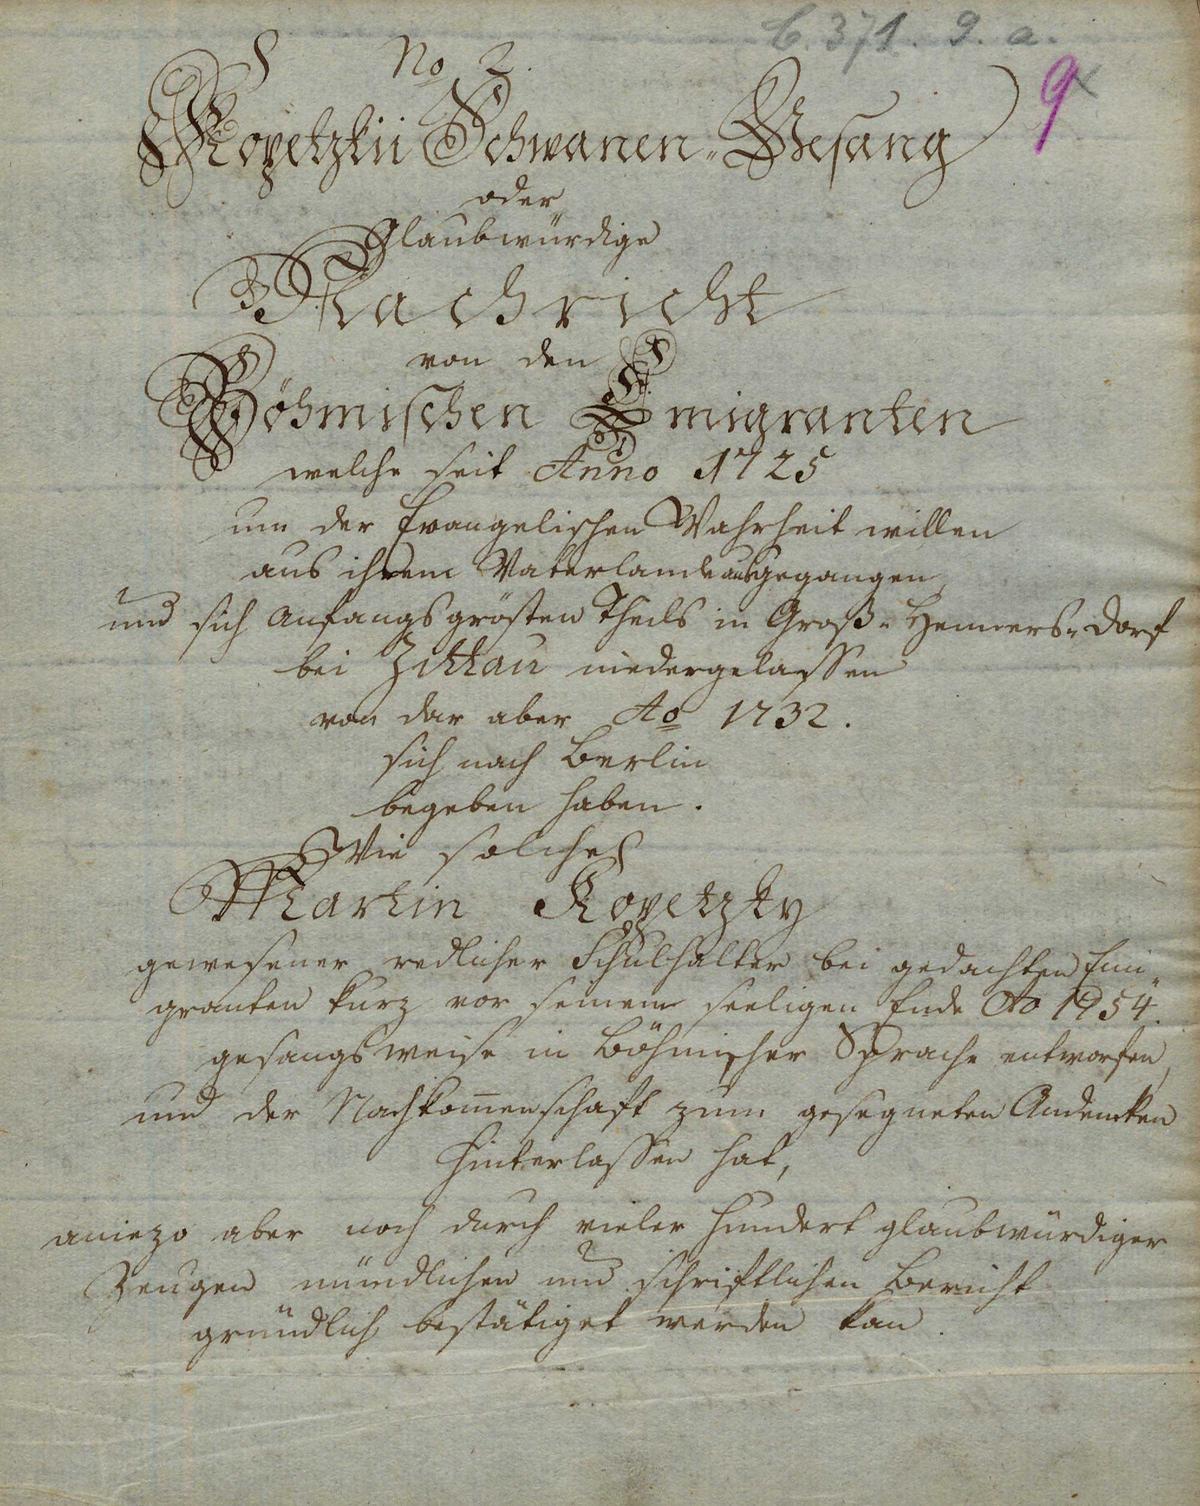 C. 371. 9. a.
No 2.
9
Kopetzkii Schwanen-Gesang
oder
Glaubwürdige
Nachricht
von den
Böhmischen Emigranten
welche seit Anno 1725
um der Evangelischen Wahrheit willen
aus ihrem Vaterlande ausgegangen
und sich Anfangs grösten Theils in Groß-Hennersdorf
bei Zittau niedergelassen
von dar aber Ao 1732.
sich nach Berlin
begeben haben.
Wie solches
Martin Kopetzky
gewesener redlicher Schulhalter bei gedachten Emi-
granten kurz vor seinem seeligen Ende Ao 1754.
gesangsweise in Böhmischer Sprache entworfen,
und der Nachkom̅enschaft zum gesegneten Andencken
hinterlassen hat,
aniezo aber noch durch vieler hundert glaubwürdiger
Zeugen mündlichen und schriftlichen Bericht
gründlich bestätiget werden kan.